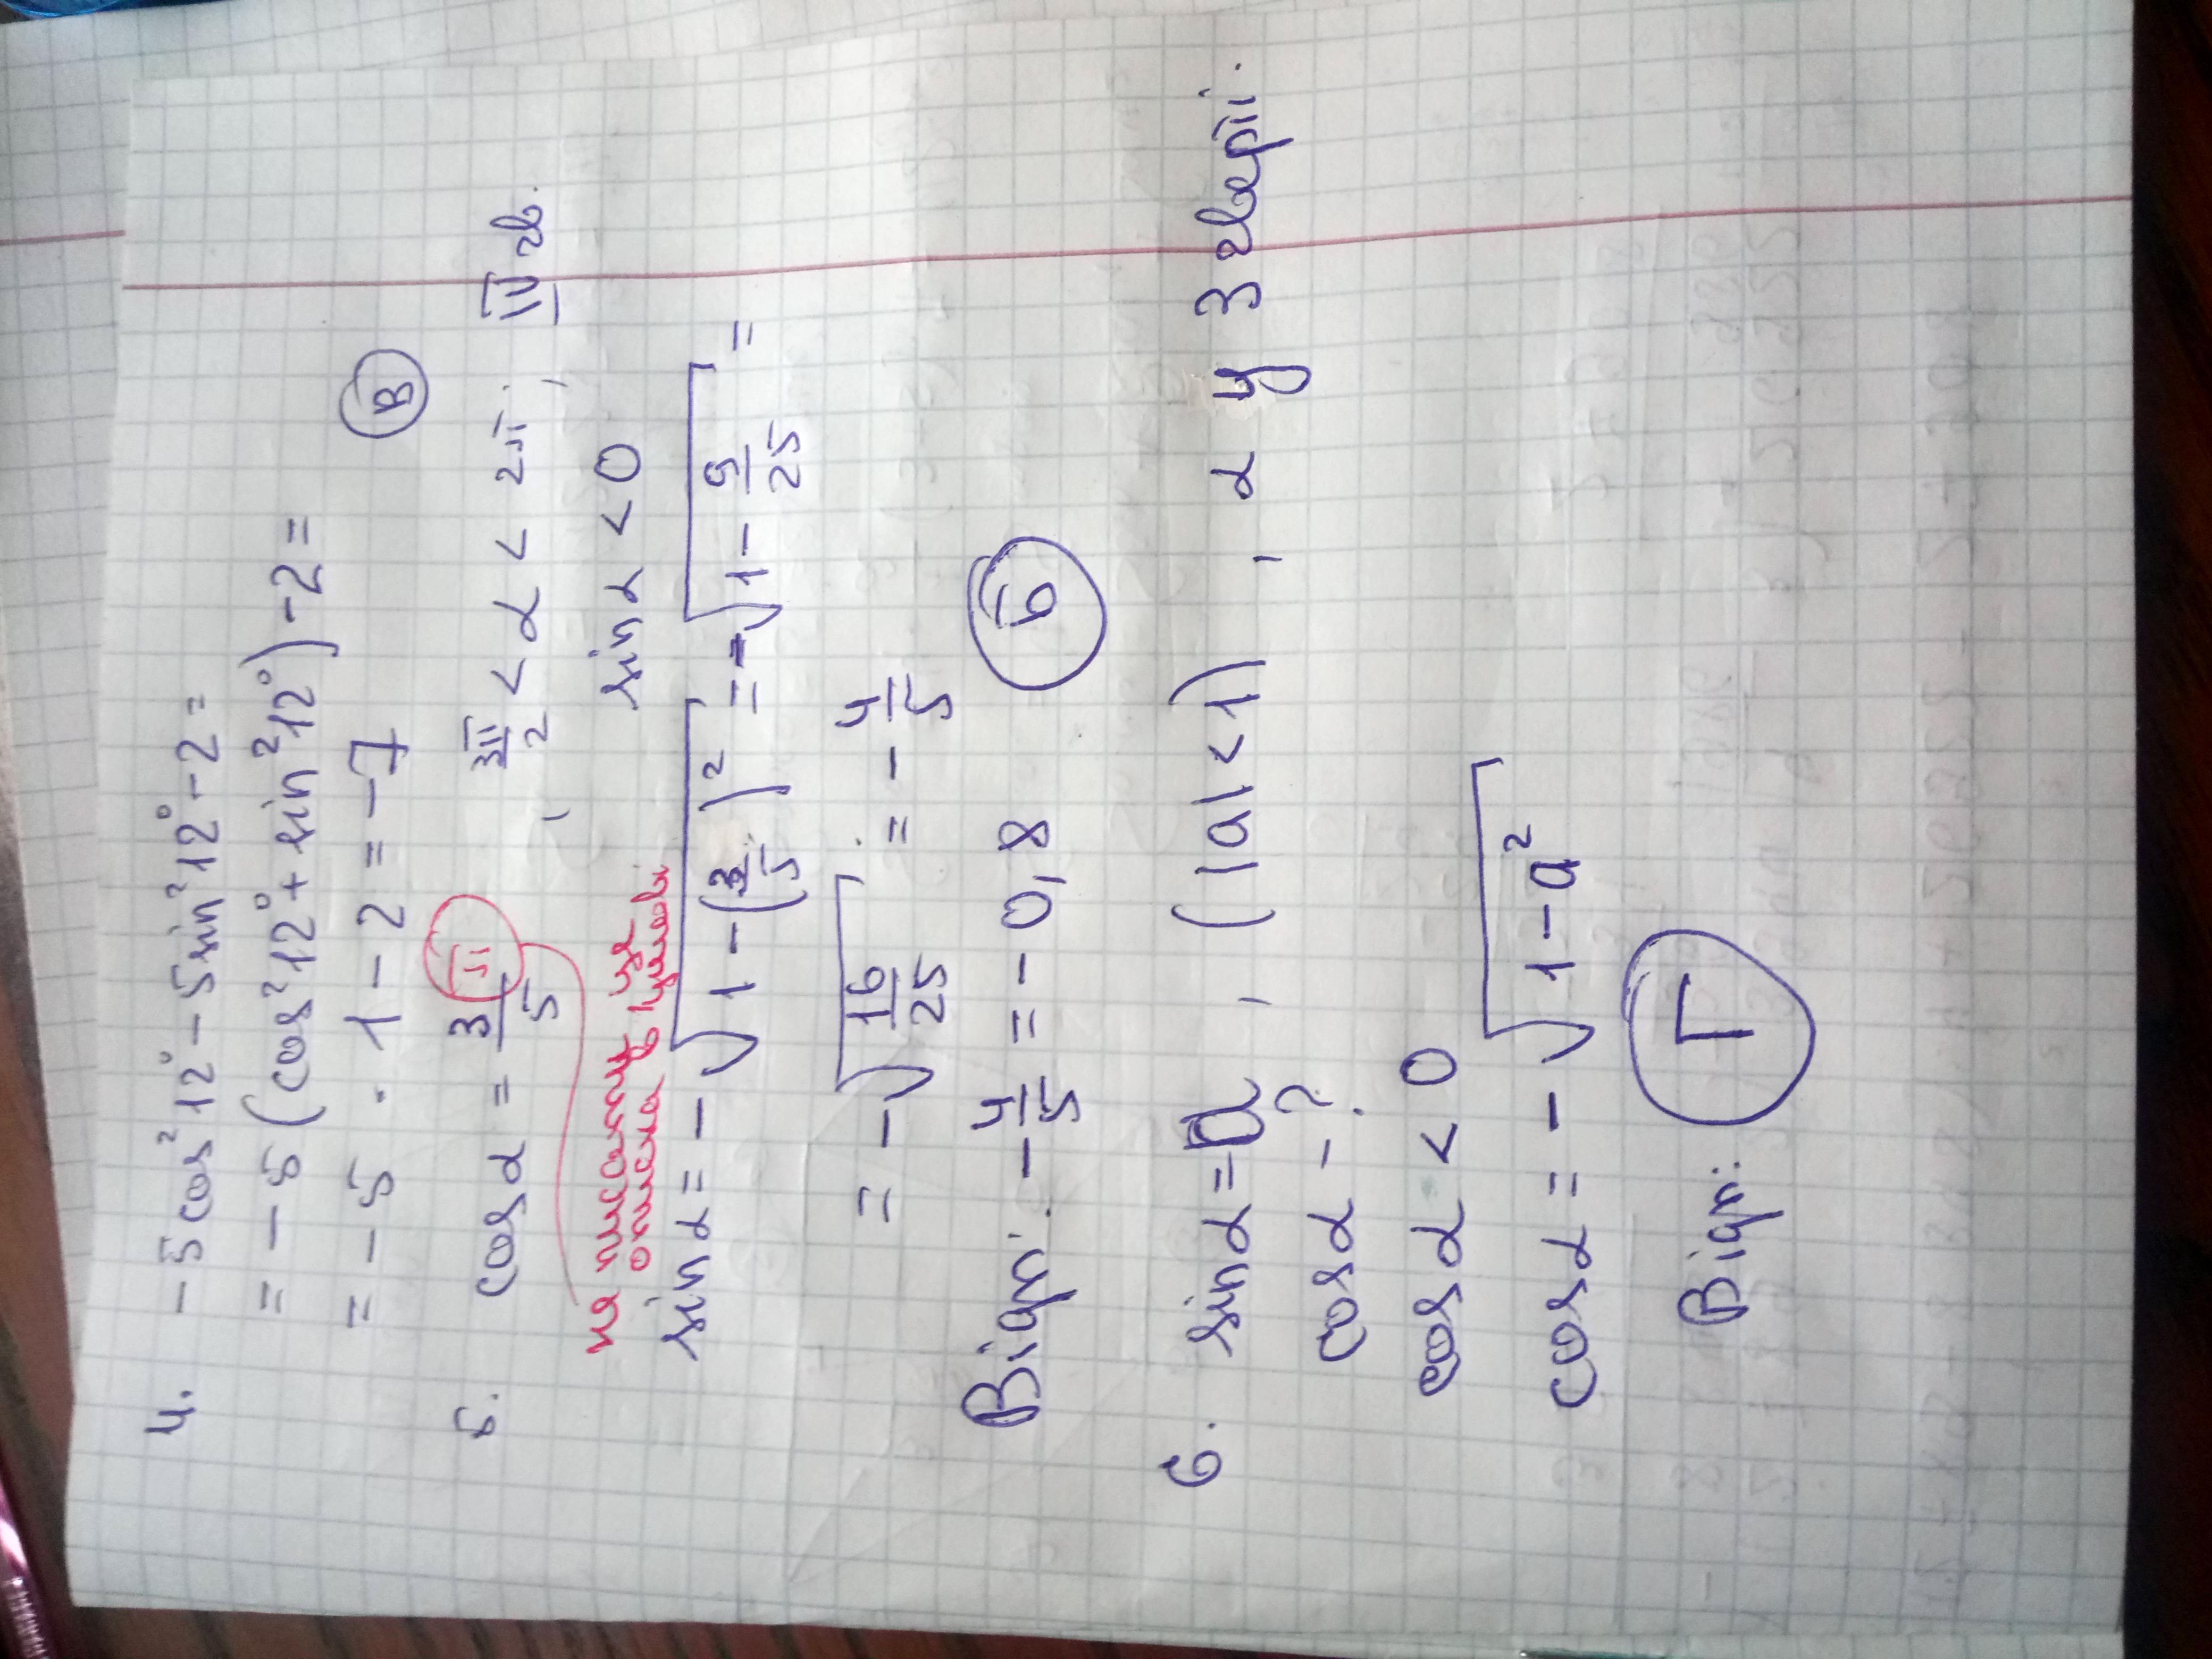 4. -5cos²12° - 5sin²12° - 2 =
= -5(cos²12° + sin²12°) - 2 =
= -5 · 1 - 2 = -7
В
5. cos α = 3π/5, 3π/2 < α < 2π; IV чв.
не писати це в умові
описка
sin α < 0
sin α = -√(1-(3/5)²) = -√(1 - 9/25) =
= -√(16/25) = -4/5
Відп: -4/5 = -0,8 Б
6. sin α = a, (|a| < 1), α у 3 чверті.
cos α - ?
cos α < 0
cos α = -√(1-a²)
Відп: Г